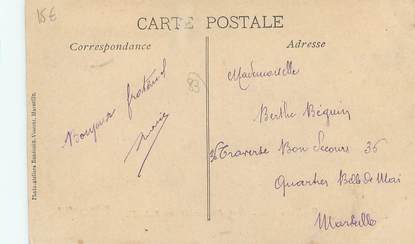 15€
CARTE POSTALE
Correspondance
Adresse
Bonjour fraternel
Marie
83
Mademoiselle
Berthe Béguin
36 Traverse Bon Secours 36
Quartier Belle de Mai
Marseille